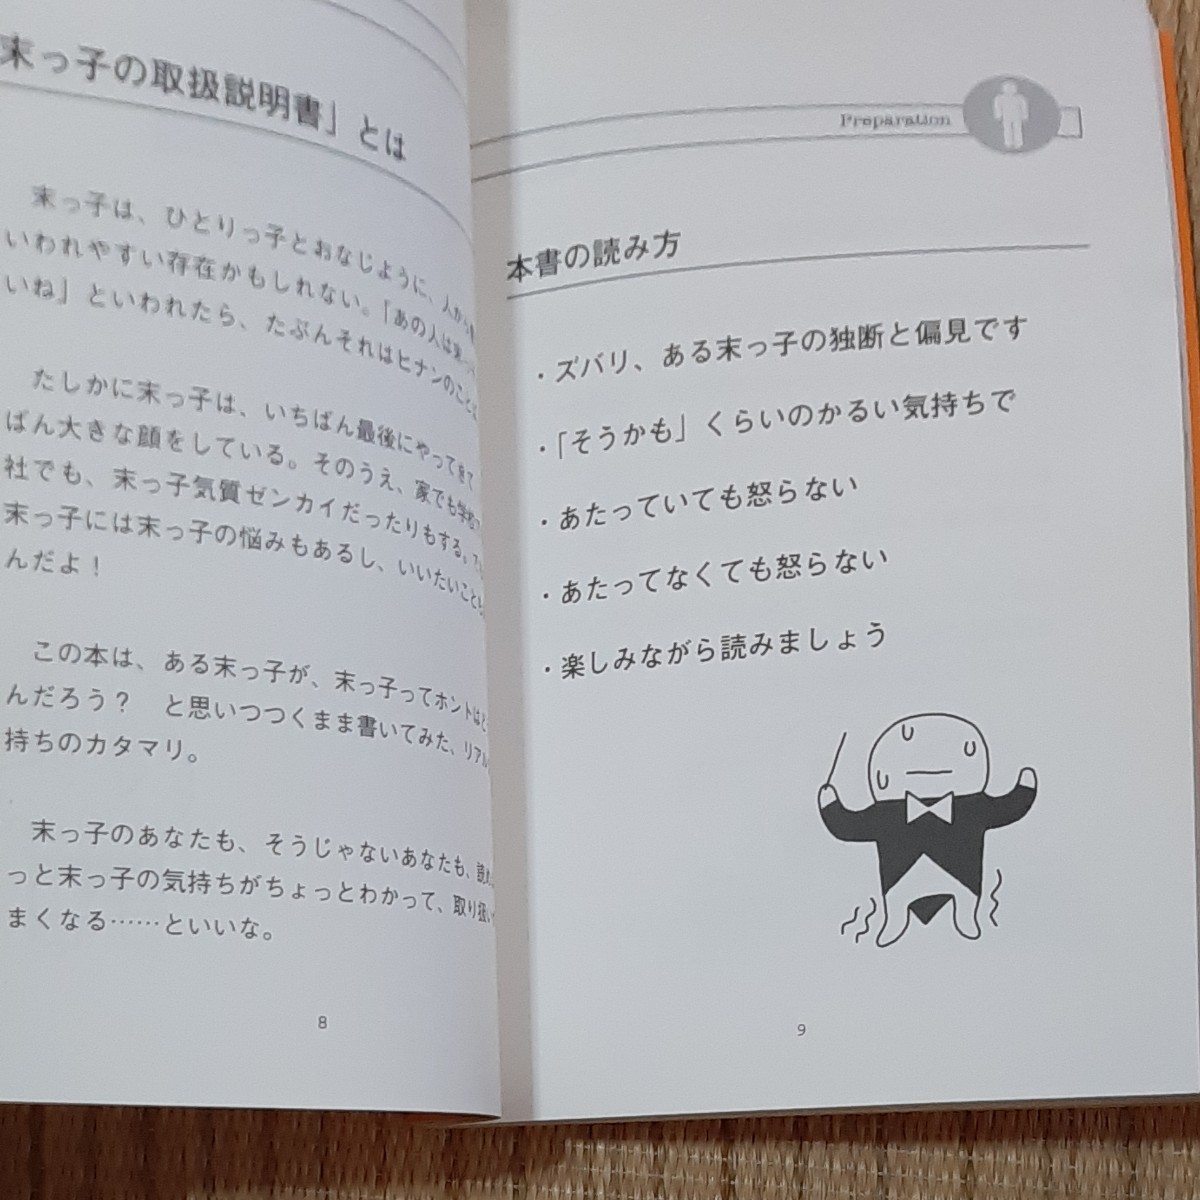 末っ子の取扱説明書」とは
末っ子は、ひとりっ子とおなじように、人から
いわれやすい存在かもしれない。「あの人は末っ
いね」といわれたら、たぶんそれはヒナンのこと
たしかに末っ子は、いちばん最後にやってきて
ばん大きな顔をしている。そのうえ、家でも学校
社でも、末っ子気質ゼンカイだったりもする。
末っ子には末っ子の悩みもあるし、いいたいこと
んだよ！
この本は、ある末っ子が、末っ子ってホントはど
んだろう？　と思いつつくまま書いてみた、リアル
持ちのカタマリ。
末っ子のあなたも、そうじゃないあなたも、読
っと末っ子の気持ちがちょっとわかって、取り扱い
まくなる……といいな。
8
Preparation
本書の読み方
・ズバリ、ある末っ子の独断と偏見です
・「そうかも」くらいのかるい気持ちで
・あたっていても怒らない
・あたってなくても怒らない
・楽しみながら読みましょう
9